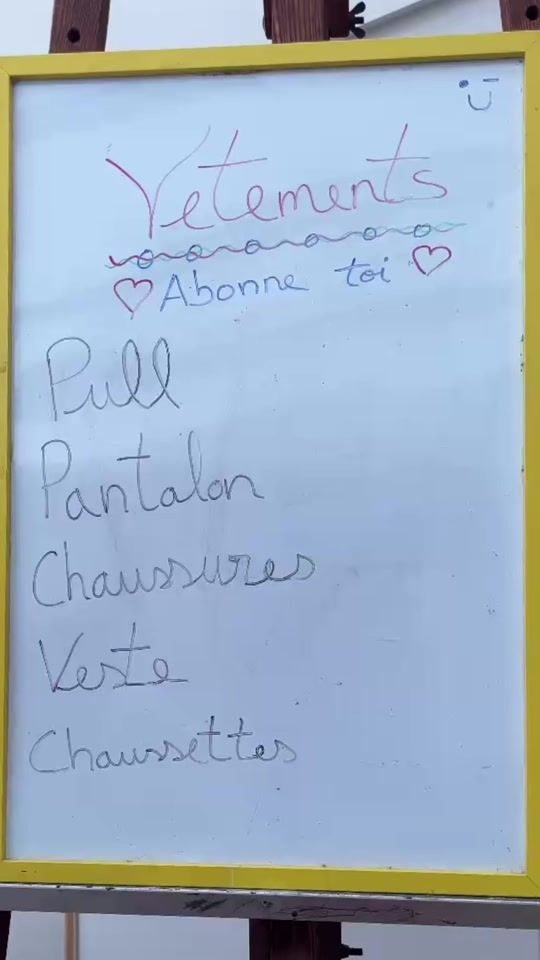 Vetements
Abonne toi
Pull
Pantalon
Chaussures
Veste
Chaussettes